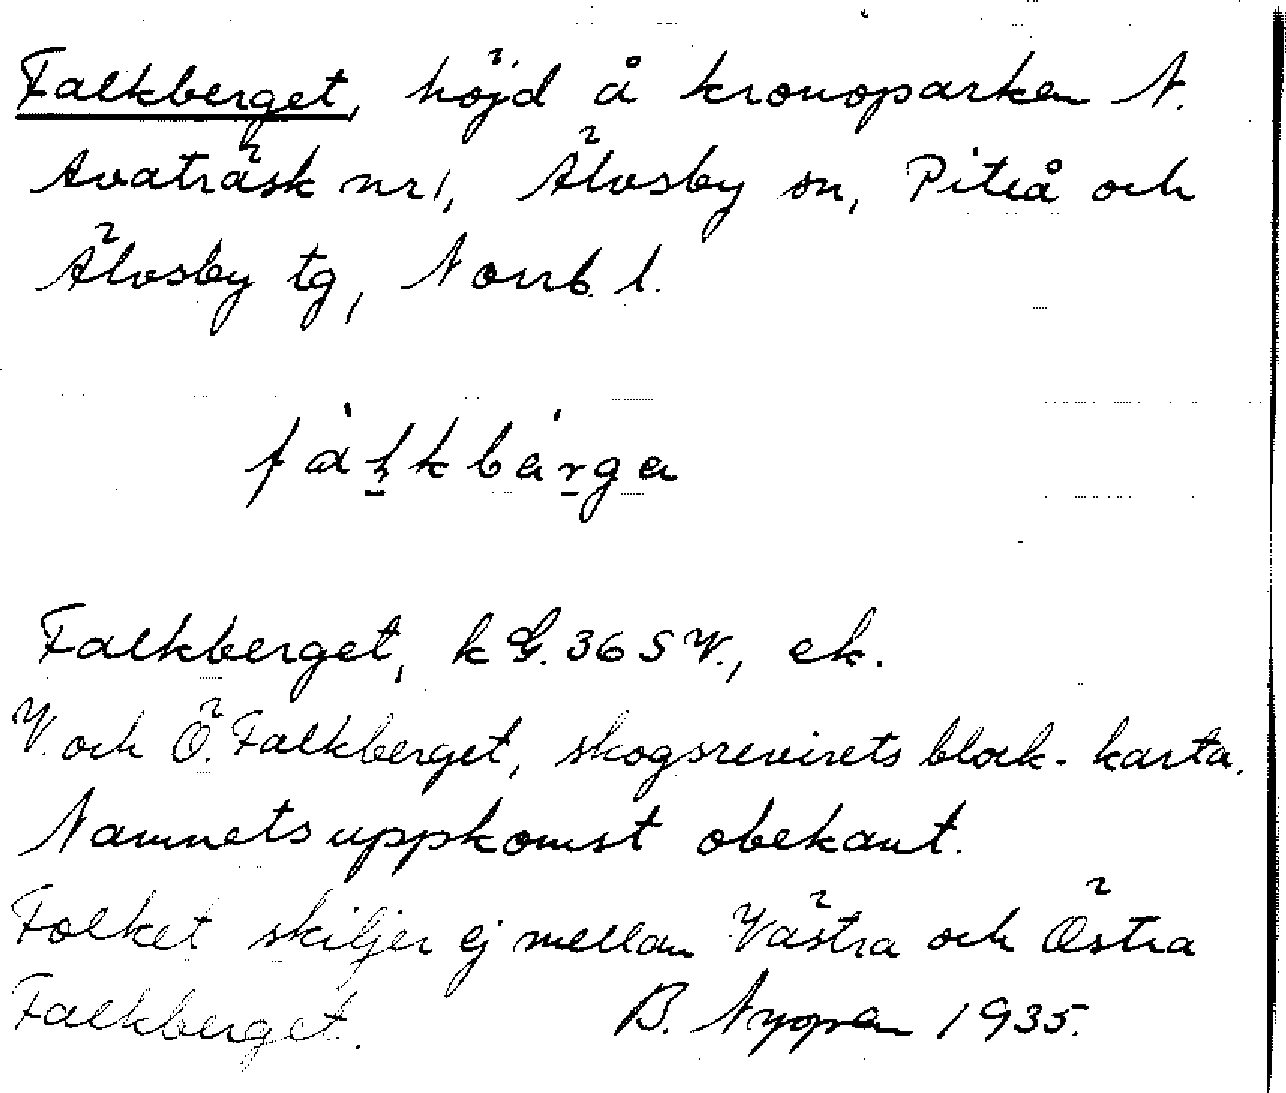 Falkberget, höjd å kronoparken N.
Avaträsk nr 1, Älvsby sn, Piteå och
Älvsby tg, Norrb. l.
fàlkbárga
Falkberget, k G. 36 S V., ek.
V. och Ö. Falkberget, skogsrevirets block-karta.
Namnets uppkomst obekant.
Folket skiljer ej mellan Västra och Östra
Falkberget. B. 1935.